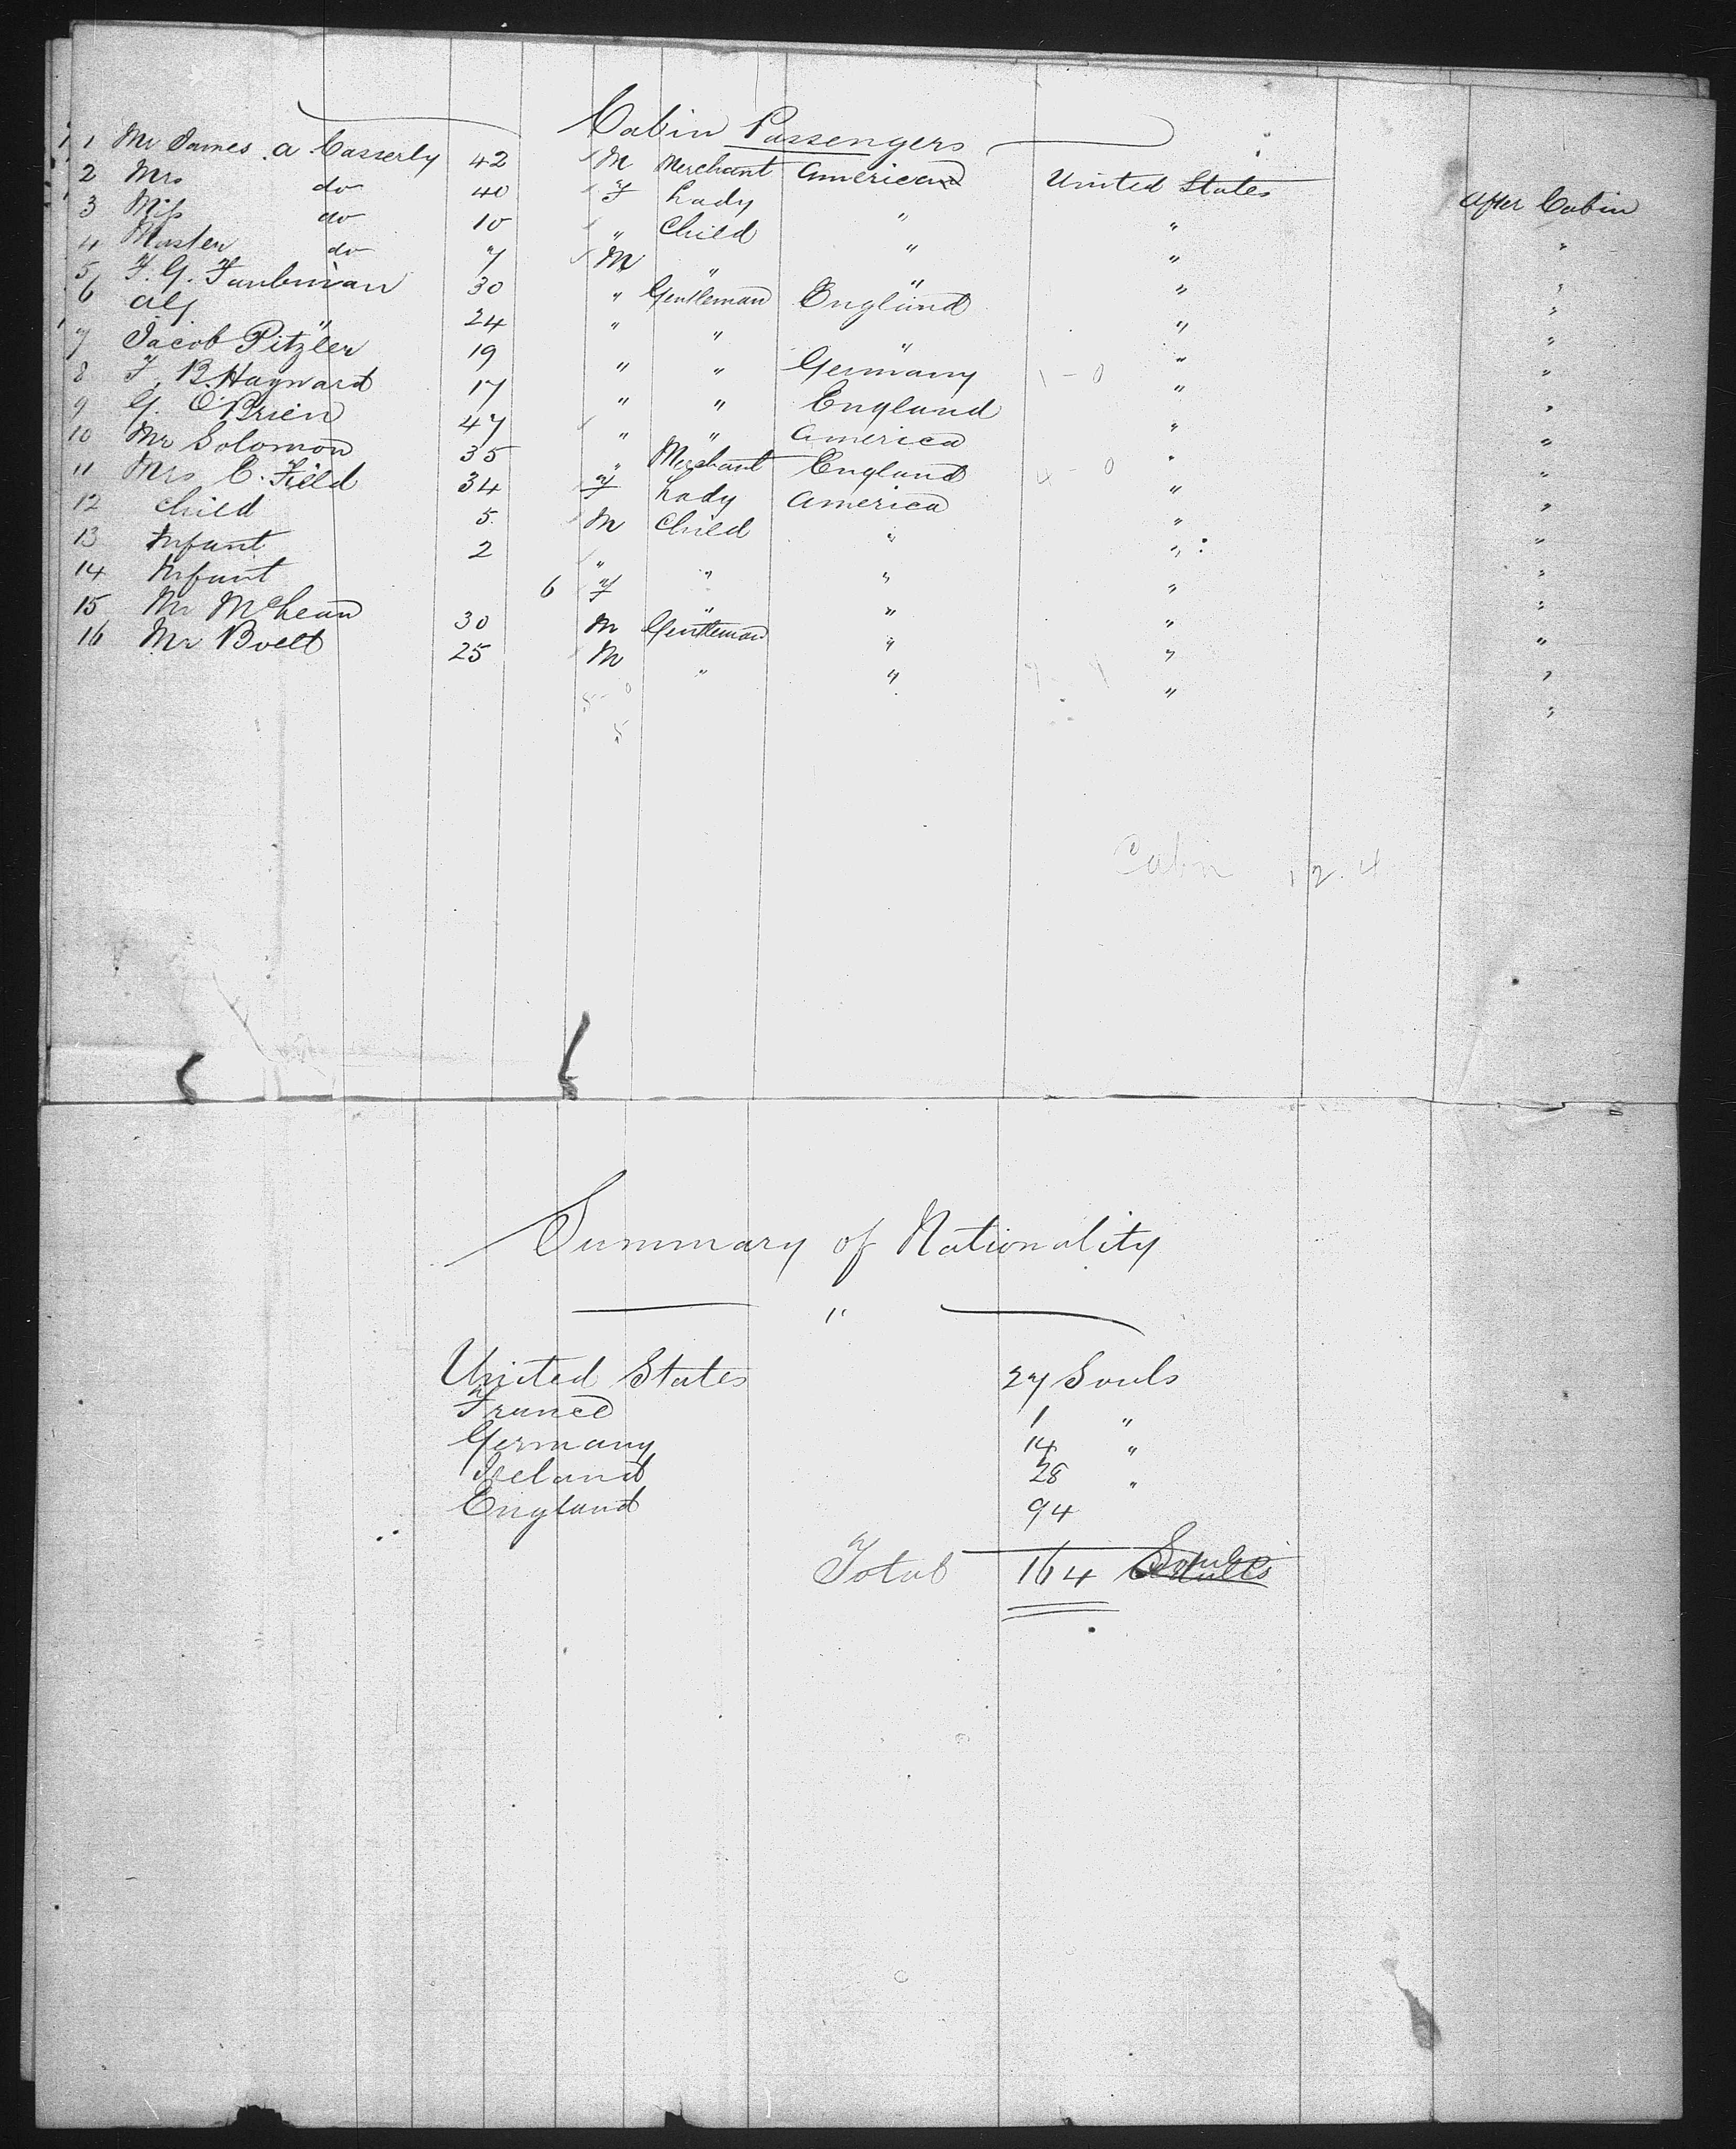 Cabin Passengers
1 Mr James A Casserly 42 M Merchant American United States After Cabin
2 Mrs do 40 F Lady " " "
3 Miss do 10 " Child " " "
4 Master do 7 M " " " "
5 F. G. 30 " Gentleman England " "
6 Alf " 24 " " " " "
7 Jacob Pitzler 19 " " Germany " "
8 F. B. Hayward 17 " " England " "
9 G. O'Brien 47 " " America " "
10 Mr Solomon 35 " Merchant England " "
11 Mrs C. Field 34 F Lady America " "
12 Child 5 M Child " " "
13 Infant 2 " " " " "
14 Infant 6 F " " " "
15 Mr McLean 30 M Gentleman " " "
16 Mr 25 M " " " "
Cabin 12. 4
Summary of Nationality
"
United States 27 Souls
France 1 "
Germany 14 "
Ireland 28 "
England 94
Total 164 Souls